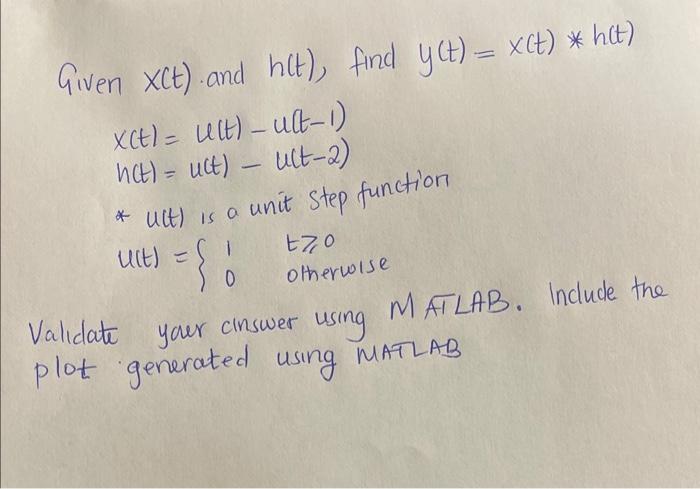 Given x(t) and h(t), find y(t) = x(t) * h(t)
x(t) = u(t) - u(t-1)
h(t) = u(t) - u(t-2)
* u(t) is a unit step function
u(t) = { 1 t⩾0
0 otherwise
Validate your answer using MATLAB. Include the
plot generated using MATLAB